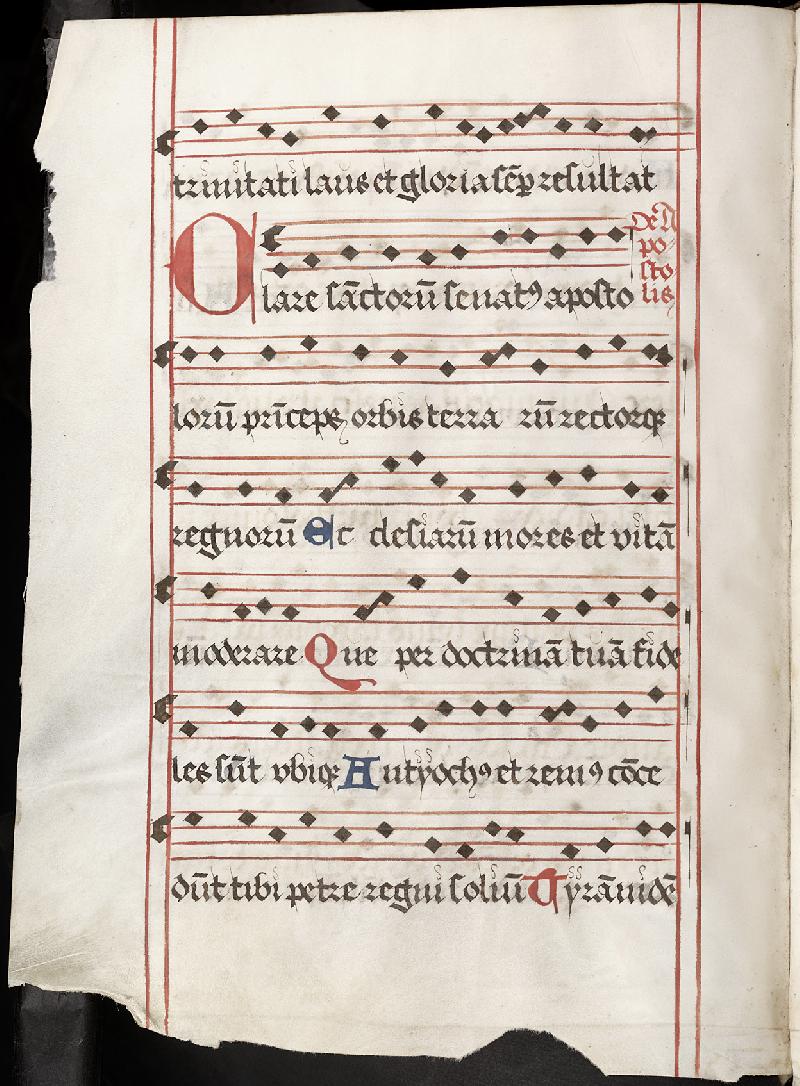 trinitati laus et gloria sēp resultat
De A
po
sto
lis
Olare sāctorū senatꝰ aposto
lorū prīceps orbis terra rū rectorqꝫ
regnorū Ec clesiarū mores et vitā
moderare Que per doctrinā tuā fide
les sūt vbiqꝫ Antyochꝰ et remꝰ cōce
dūt tibi petre regni soliū Tyrānidē